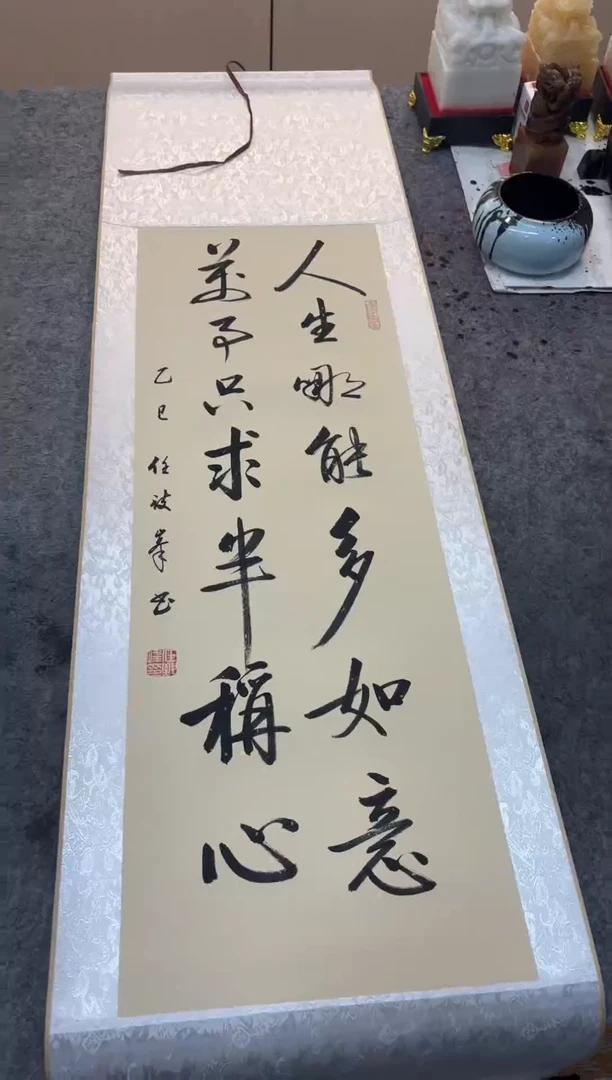 人生哪能多如意
萬事只求半稱心
乙巳 任 峯书